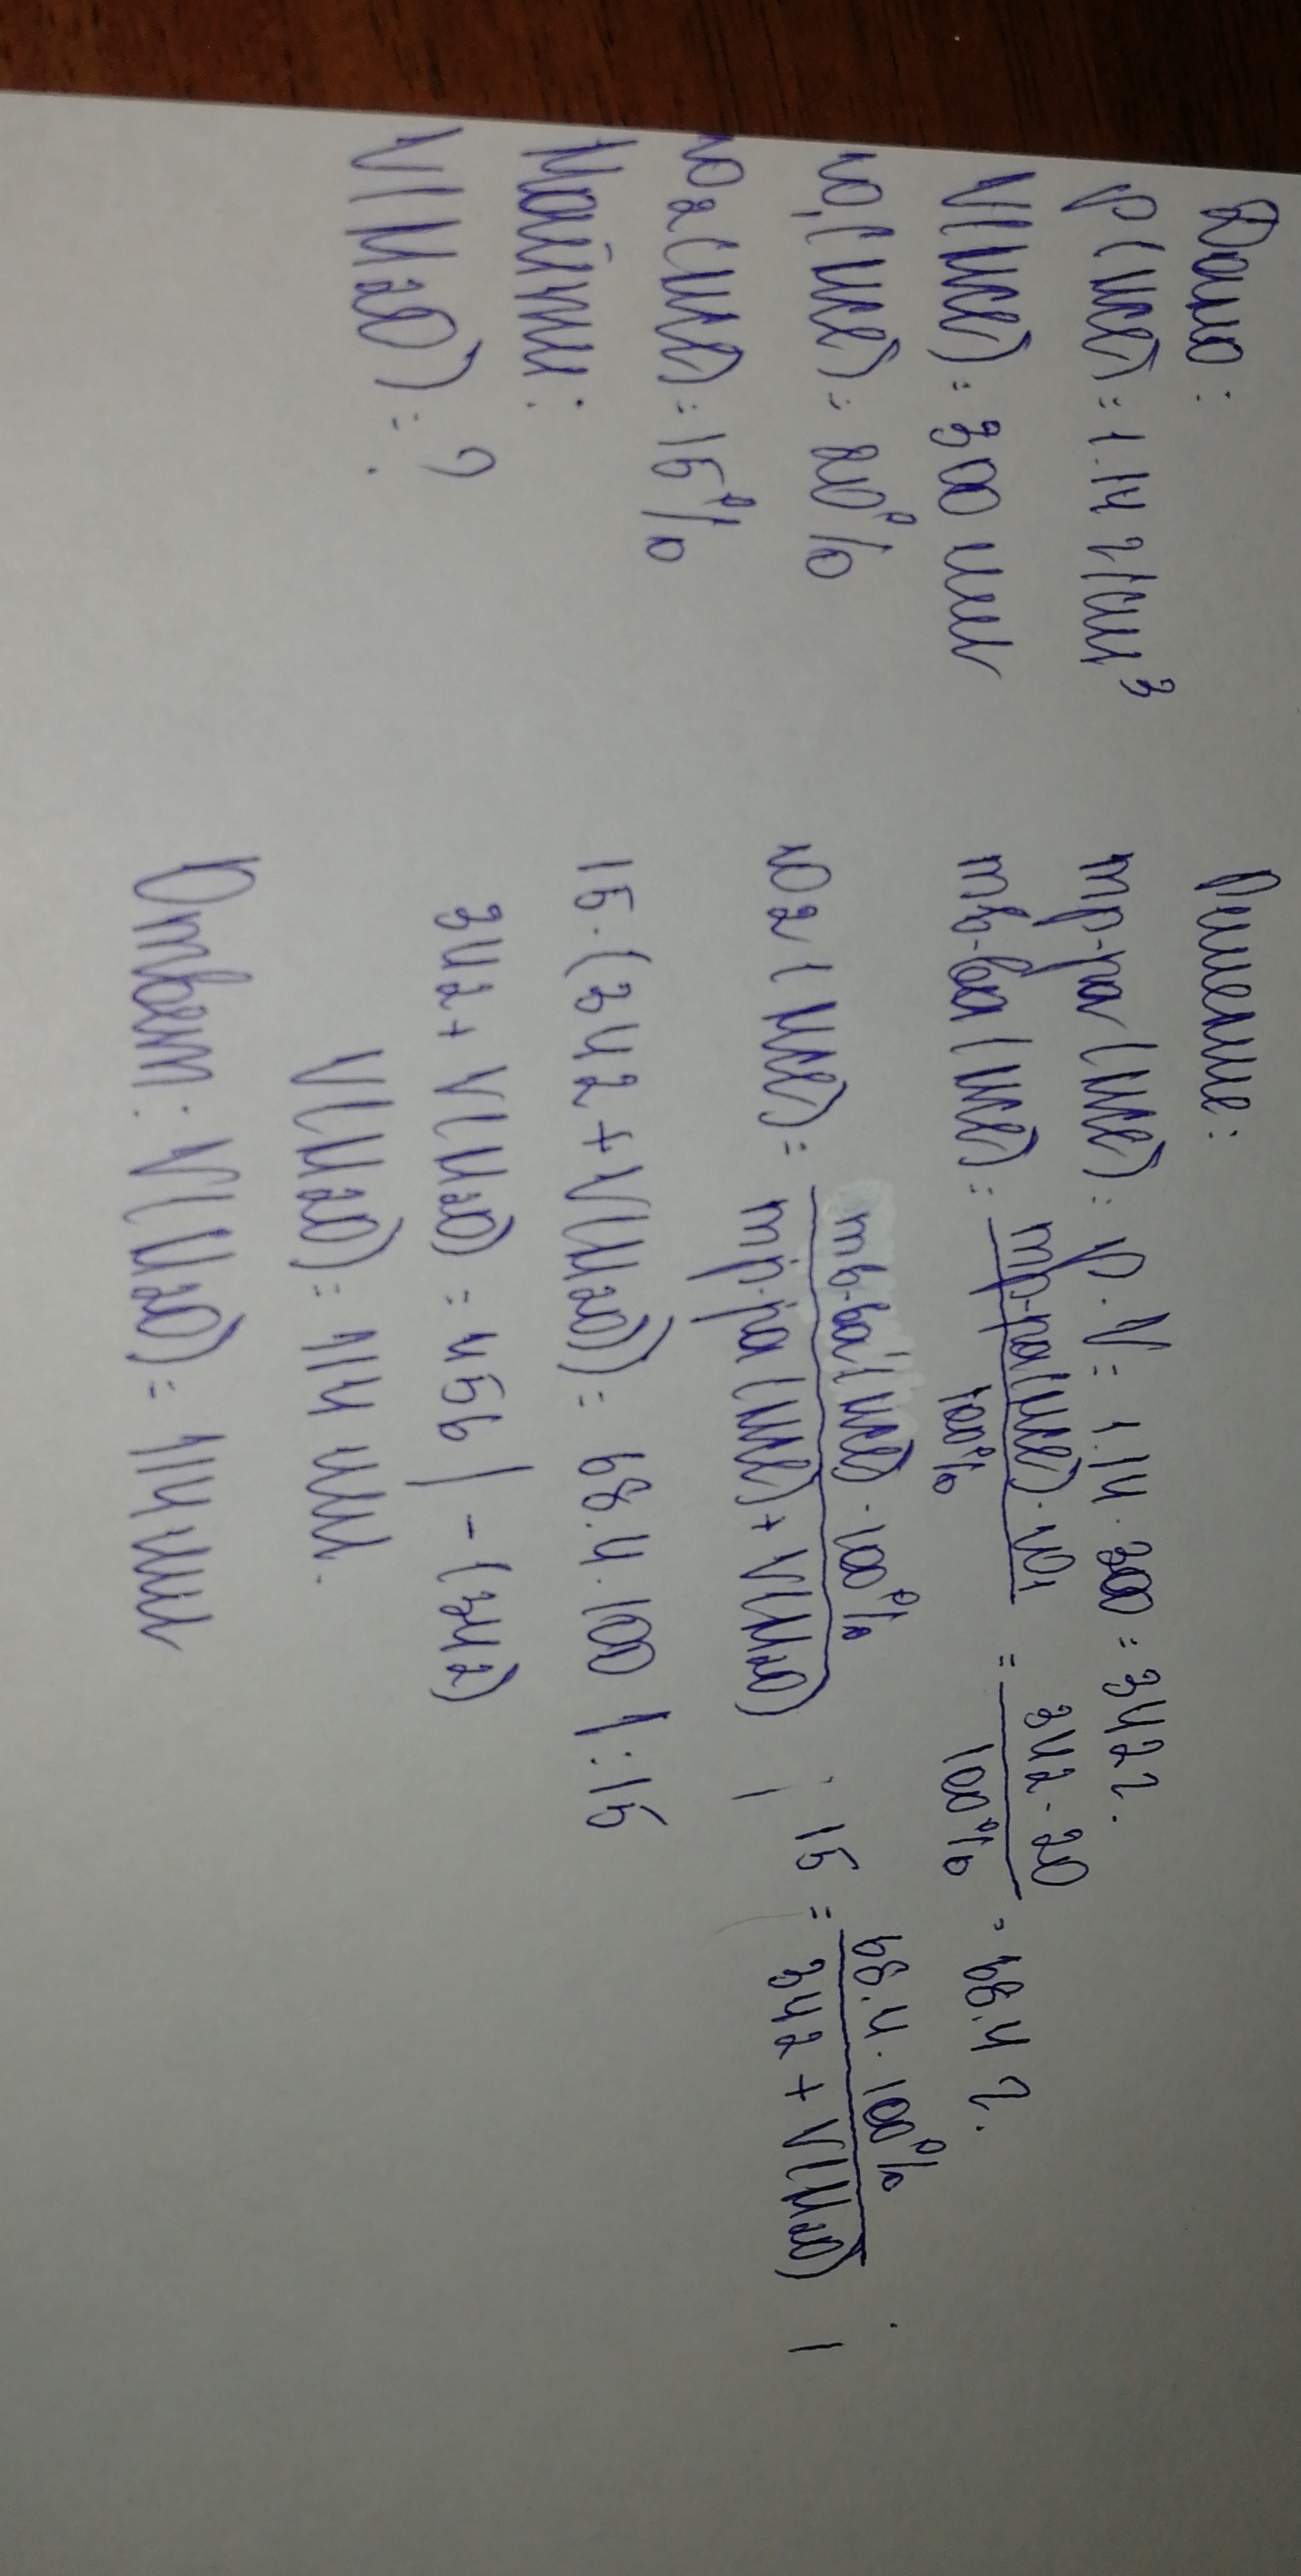 Дано:
ρ(HCl) = 1.14 г/см³
V(HCl) = 300 мл
ω₁(HCl) = 20%
ω₂(HCl) = 15%
Найти:
V(H₂O) = ?
Решение:
mр-ра(HCl) = ρ · V = 1.14 · 300 = 342 г.
mв-ва(HCl) = mр-ра(HCl) · ω₁ / 100% = 342 · 20 / 100% = 68.4 г.
ω₂(HCl) = mв-ва(HCl) · 100% / mр-ра(HCl) + V(H₂O) ; 15 = 68.4 · 100% / 342 + V(H₂O) ;
15 · (342 + V(H₂O)) = 68.4 · 100 | : 15
342 + V(H₂O) = 456 | - (342)
V(H₂O) = 114 мл.
Ответ: V(H₂O) = 114 мл